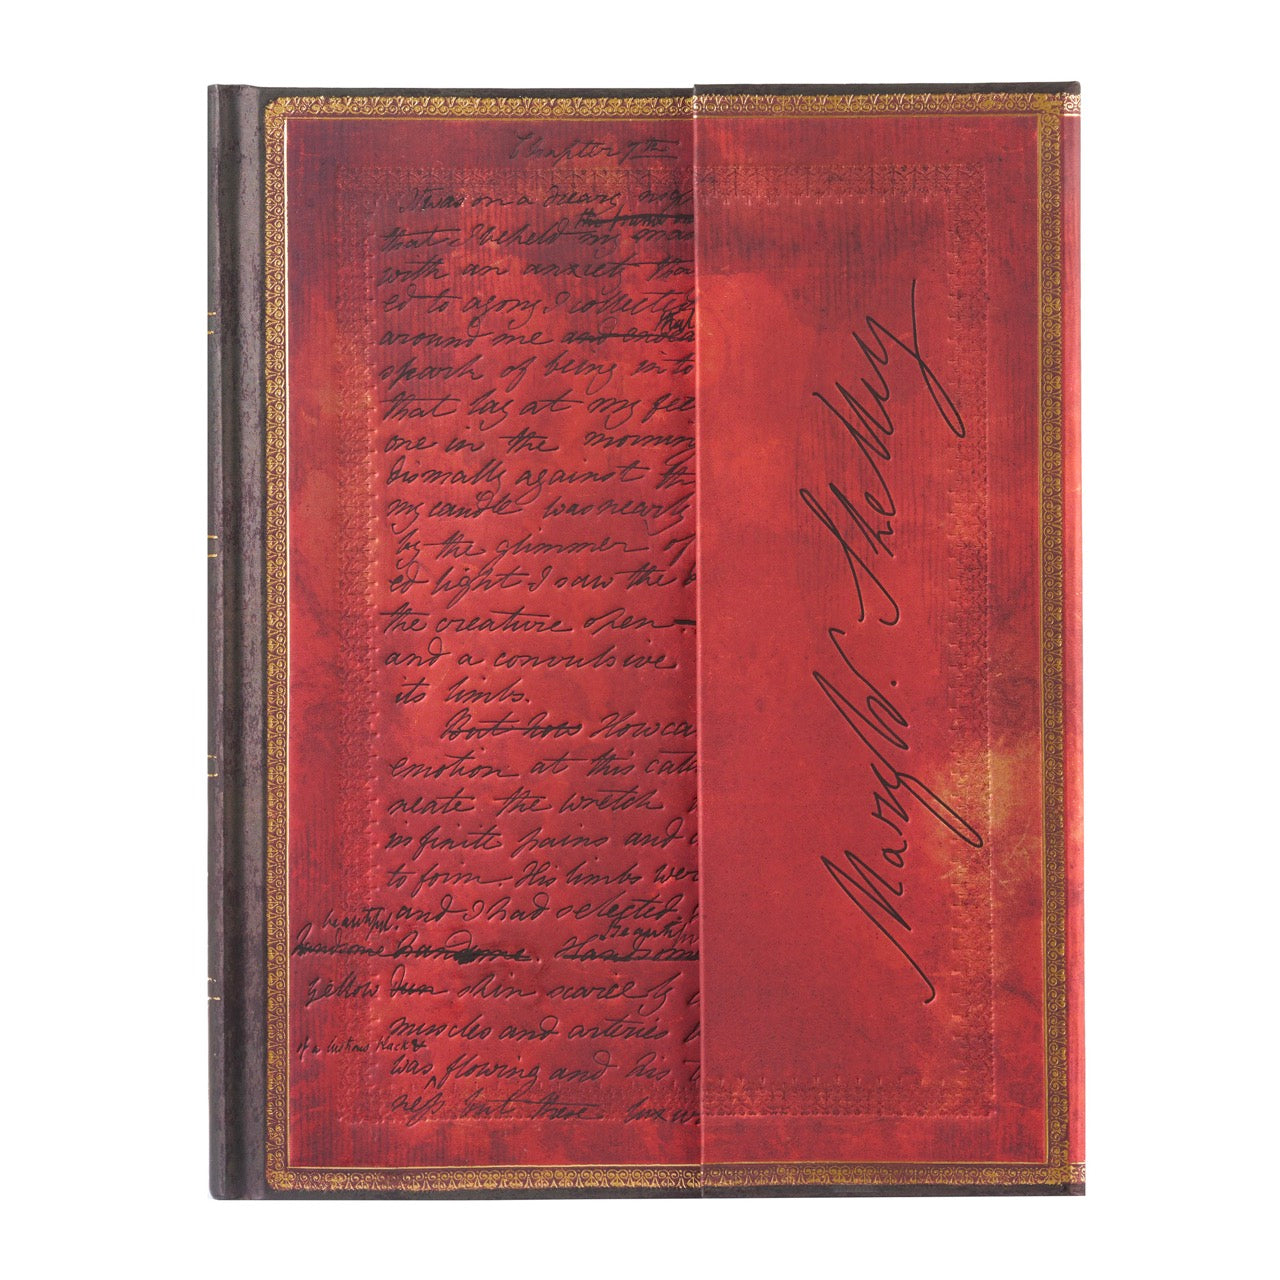 Chapter 7th
It was on a dreary nigh
the frame on
that I beheld my man
with an anxiety tha
ed to agony, I collected
that
around me and endea
spark of being into
that lay at my feet
one in the morning
dismally against th
my candle was nearly
by the glimmer of
ed light I saw the
the creature open
and a convulsive
its limbs.
But how How ca
emotion at this cat
neate the wretch
infinite pains and
to form. His limbs wer
and I had selected
beautiful.
Beautiful
handsome handsome. Handsome
yellow dun skin scarcely
muscles and arteries
of a lustrous black &
was flowing and his
ness but these lux
Mary W. Shelley